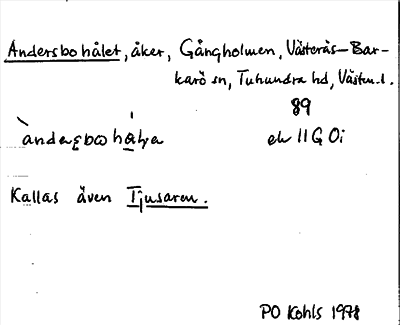 Andersbohålet, åker, Gångholmen, Västerås-Bar-
karö sn, Tuhundra hd, Västm.l.
89
ek 11G 0i
Kallas även Tjusaren.
PO Kohls 1978